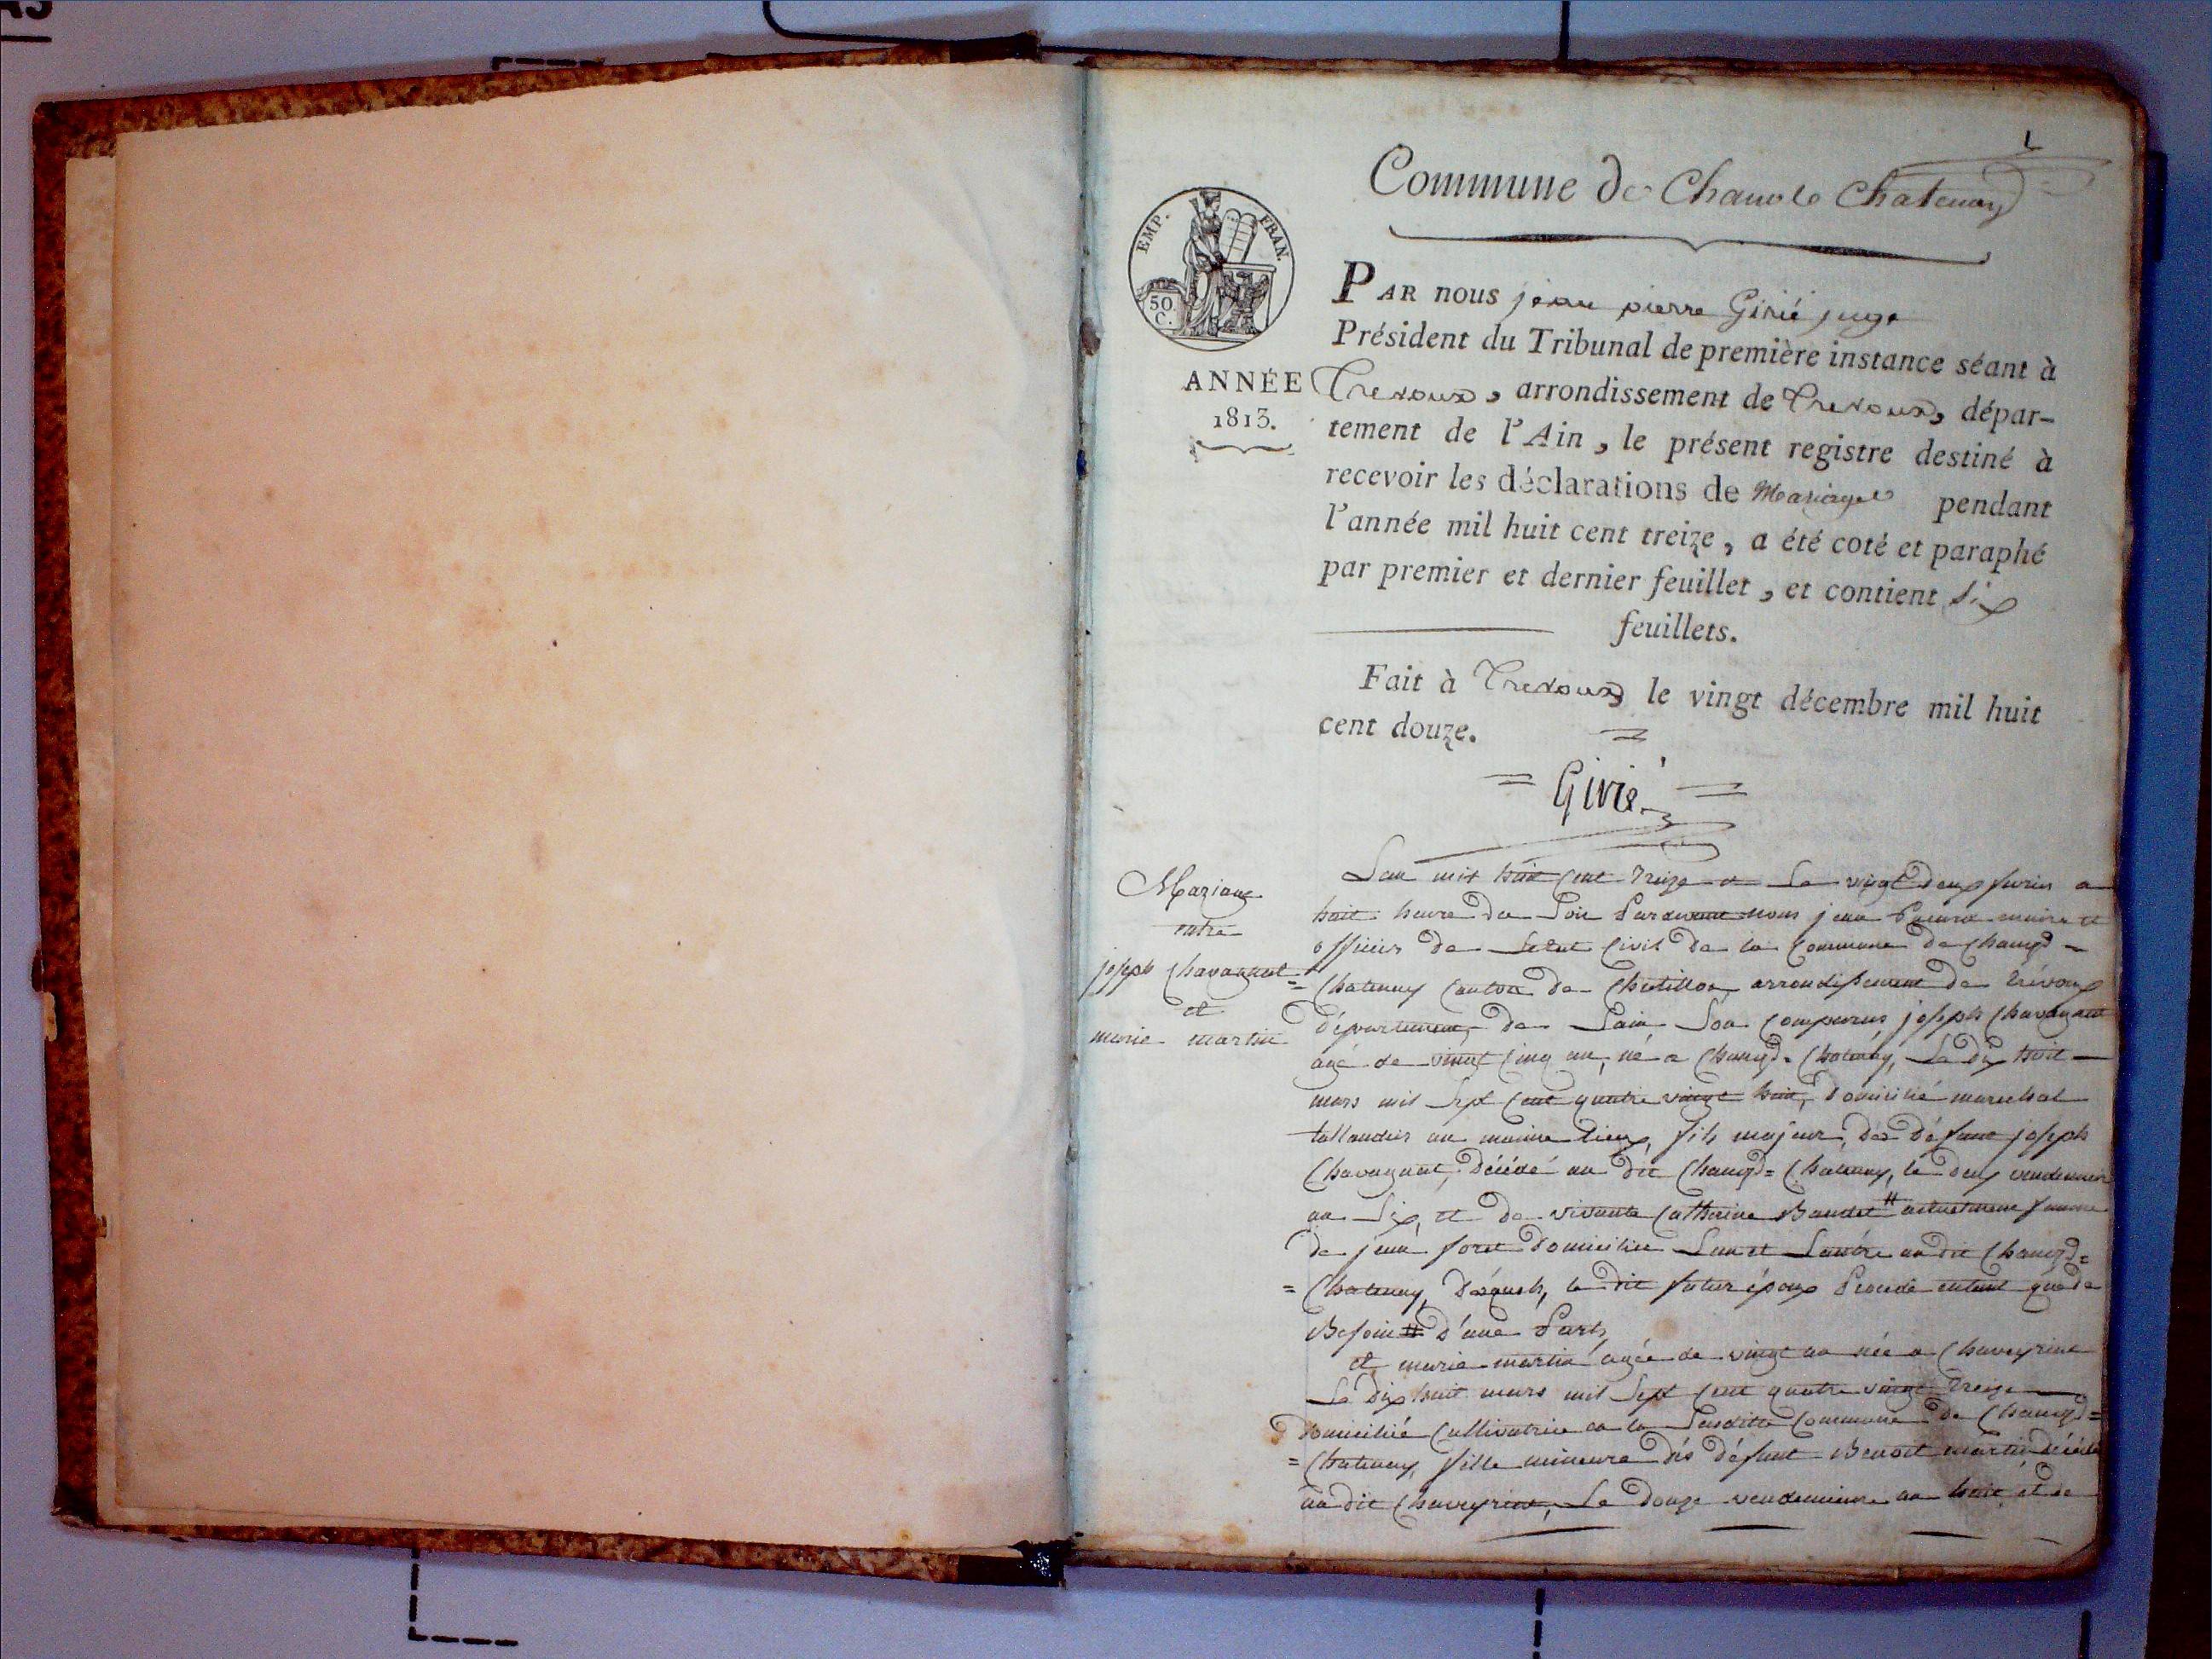 1
Commune de Chanoz Chatenay
EMP. FRAN.
50 C.
PAR nous jean pierre Girié juge
Président du Tribunal de première instance séant à
ANNÉE
1813.
Trevoux, arrondissement de Trevoux, dépar-
tement de l'Ain, le présent registre destiné à
recevoir les déclarations de Mariages pendant
l'année mil huit cent treize, a été coté et paraphé
par premier et dernier feuillet, et contient Six
feuillets.
Fait à Trevoux, le vingt décembre mil huit
cent douze.
= Girié =
Mariage
entre
joseph Chavagnat
et
marie martin
Lan mil huit Cent treize et Le vingt deux fevrier a
huit heure du Soir Pardevant nous jean maire et
officier de Letat Civil de la Commune de
= Chatenay Canton de Chatillon, arrondissement de trévoux
département de Lain Son Comparus joseph Chavagnat
agé de vingt Cinq an, né a Chatenay, Le dix huit
mars mil Sept Cent quatre vingt huit, domicilié marechal
tallandier au même lieux, fils majeur des défunt joseph
Chavagnat, décédé au dit Chatenay, le deux vendemier
an Six, et de vivante Catherine Baudet # actuelment femme
de jean foret domiciliée Lun et Lautre au dit
= Chatenay, desquels, le dit futur époux Procede entant que de
Besoin # d'une Part,
et marie martin agée de vingt an née a Chaveyriat
Le dix huit mars mil Sept Cent quatre vingt treize
domicilié Cultivatrice en la Susditte Commune de
= Chatenay, fille mineure dés défunt Benoit martin décédé
au dit Chaveyriat, Le douze vendemiaire an huit et de